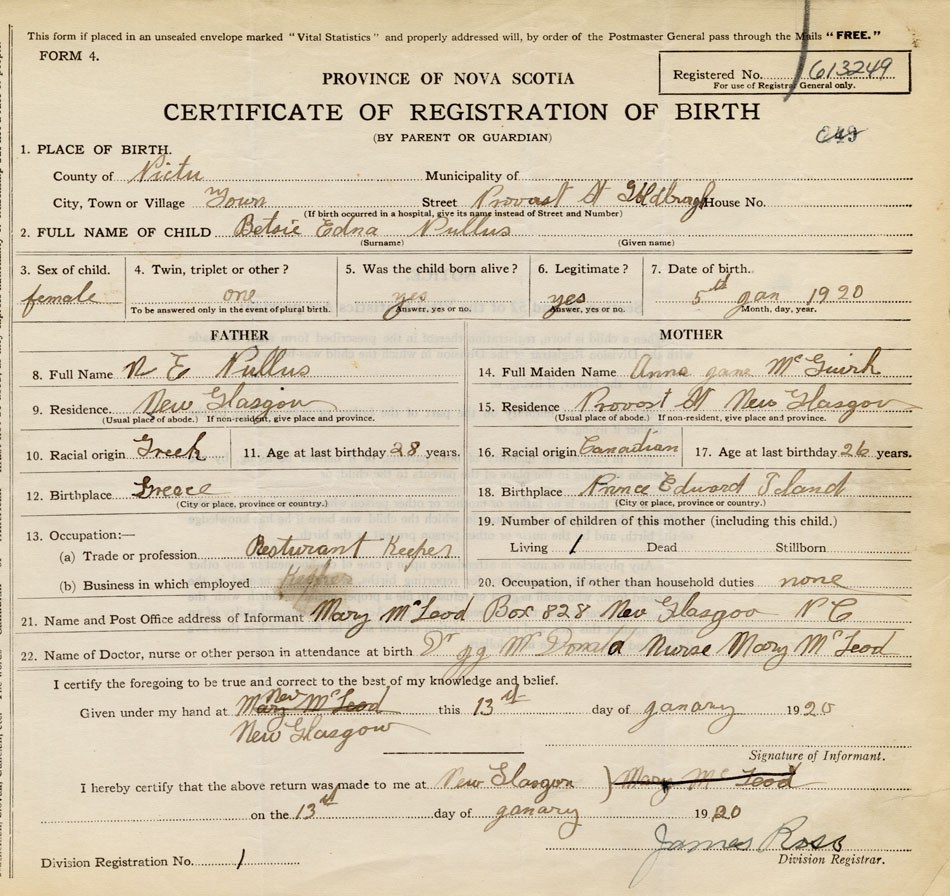 This form if placed in an unsealed envelope marked "Vital Statistics" and properly addressed will, by order of the Postmaster General pass through the Mails "FREE."
FORM 4.
Registered No. 613249
For use of Registrar General only.
PROVINCE OF NOVA SCOTIA
CERTIFICATE OF REGISTRATION OF BIRTH
(BY PARENT OR GUARDIAN)
1. PLACE OF BIRTH.
County of Pictu Municipality of
City, Town or Village Town Street Provost St House No.
(If birth occurred in a hospital, give its name instead of Street and Number)
2. FULL NAME OF CHILD Betsie Edna Pullus
(Surname) (Given name)
3. Sex of child. 4. Twin, triplet or other? 5. Was the child born alive? 6. Legitimate? 7. Date of birth.
female one yes yes 5th Jan 1920
To be answered only in the event of plural birth. Answer, yes or no. Answer, yes or no. Month, day, year.
FATHER MOTHER
8. Full Name N E Pullus 14. Full Maiden Name Anna Jane McGuirk
9. Residence. New Glasgow 15. Residence Provost St New Glasgow
(Usual place of abode.) If non-resident, give place and province. (Usual place of abode.) If non-resident, give place and province.
10. Racial origin Greek 11. Age at last birthday 28 years. 16. Racial origin Canadian 17. Age at last birthday 26 years.
12. Birthplace Greece 18. Birthplace Prince Edward Island
(City or place, province or country.) (City or place, province or country.)
13. Occupation:— 19. Number of children of this mother (including this child.)
(a) Trade or profession Resturant Keeper Living 1 Dead Stillborn
(b) Business in which employed 20. Occupation, if other than household duties none
21. Name and Post Office address of Informant Mary McLeod Box 828 New Glasgow N C
22. Name of Doctor, nurse or other person in attendance at birth Dr JJ McDonald Nurse Mary McLeod
I certify the foregoing to be true and correct to the best of my knowledge and belief.
Given under my hand at Mary McLeod New this 13st day of ganary 1920
New Glasgow
Signature of Informant.
I hereby certify that the above return was made to me at New Glasgow ) Mary Mc Leod
on the 13st day of ganary 1920
James Ross
Division Registration No. 1 Division Registrar.